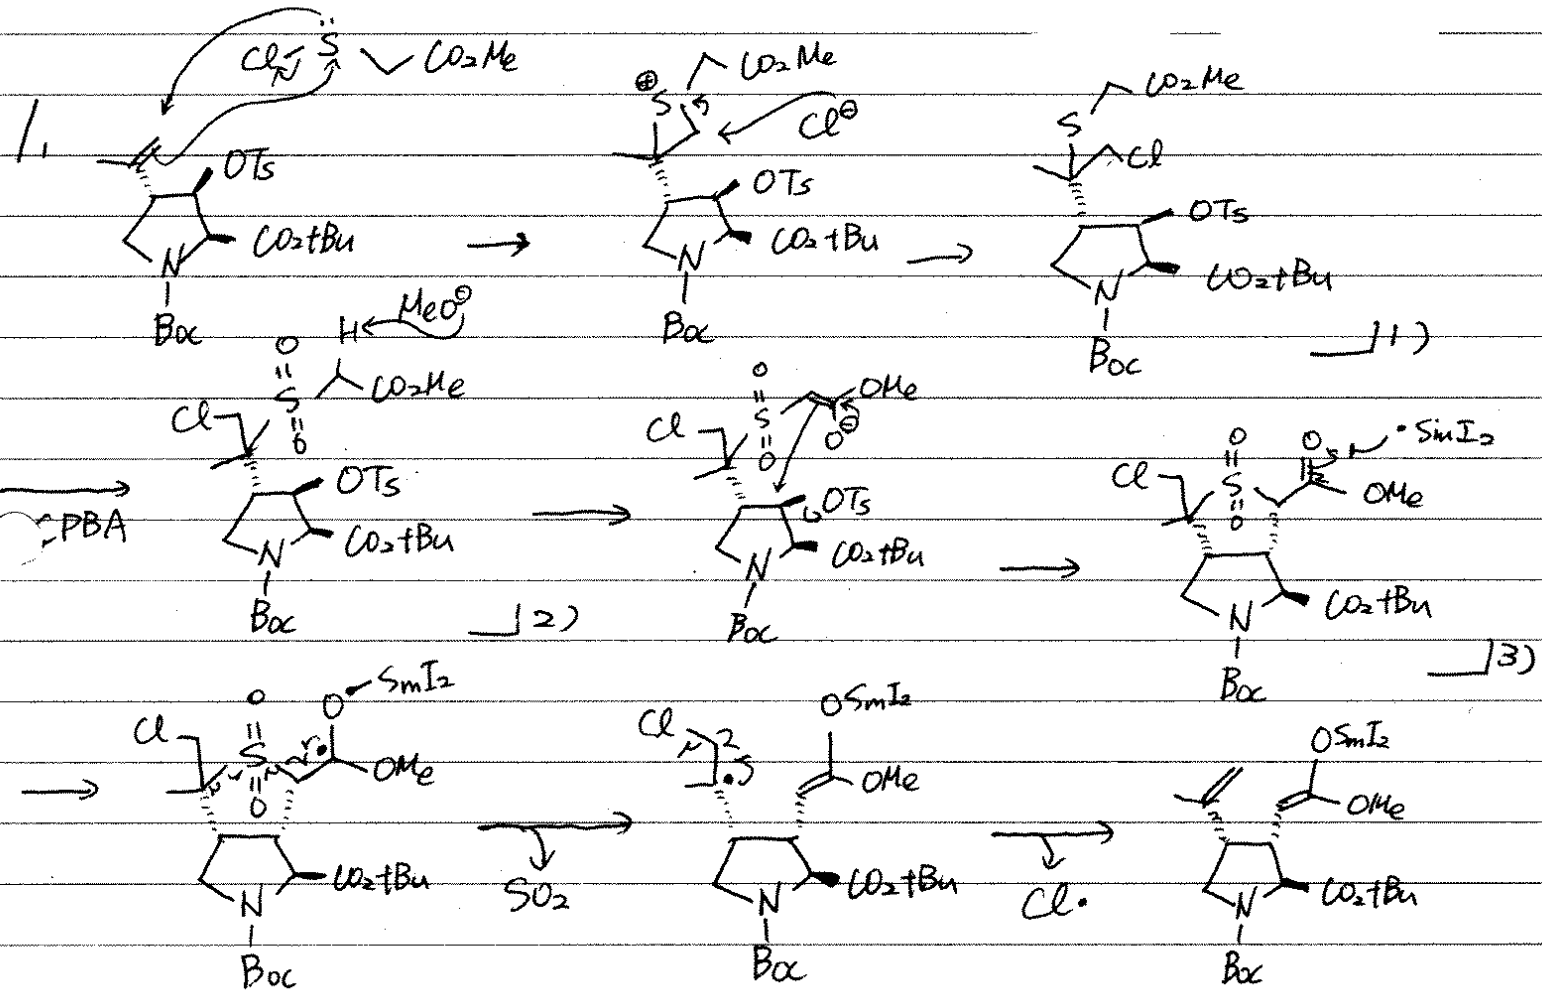 1.
Cl S CO2Me
OTs
CO2tBu
N
Boc
⊕ S CO2Me
Cl⊖
OTs
CO2tBu
N
Boc
CO2Me
S
Cl
OTs
CO2tBu
N
Boc
1)
CPBA
MeO⊖
H
O
S CO2Me
O
Cl
OTs
CO2tBu
N
Boc
2)
O
S OMe
O O⊖
Cl
OTs
CO2tBu
N
Boc
O O • SmI2
Cl S OMe
O
CO2tBu
N
Boc
3)
O O SmI2
Cl S • OMe
O
CO2tBu
N
Boc
SO2
OSmI2
Cl
• OMe
CO2tBu
N
Boc
Cl•
OSmI2
OMe
CO2tBu
N
Boc